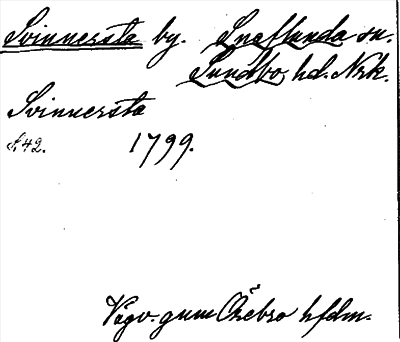 Svinnersta by. Snaflunda sn.
Sundbo hd. Nrk.
Svinnersta
S. 42. 1799.
Vägv. genom Örebro hfdm.